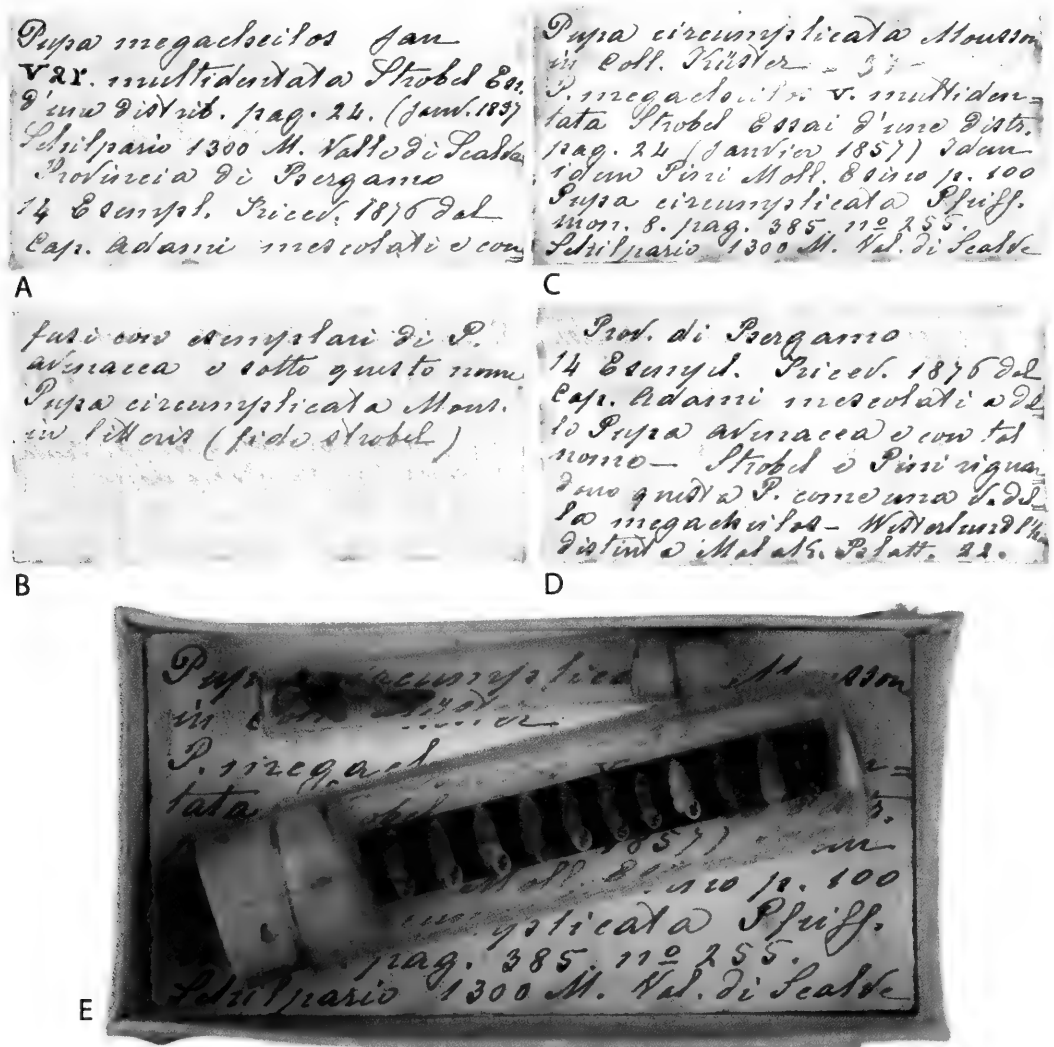 Pupa megacheilos Jan
var. multidentata Strobel Ess.
d'une distrib. pag. 24. (Janv. 1857
Schilpario 1300 M. Valle di Scalve
Provincia di Bergamo
14 Esempl. Ricev. 1876 dal
Cap. Adami mescolati e con=
A
fusi con esemplari di P.
avenacea e sotto questo nome
Pupa circumplicata Mous.
in litteris (fide Strobel)
B
Pupa circumplicata Mousson
in Coll. Küster
P. megacheilos v. multiden=
tata Strobel Essai d'une distr.
pag. 24 (Janvier 1857) Idem
idem Pini Moll. Esino p. 100
Pupa circumplicata Pfeiff.
mon. 8. pag. 385 nº 255.
Schilpario 1300 M. Val. di Scalve
C
Prov. di Bergamo
14 Esempl. Ricev. 1876 dal
Cap. Adami mescolati a del=
le Pupa avenacea e con tal
nome — Strobel e Pini riguar=
dano questa P. come una v. del=
la megacheilos — Westerlund
distinta Malak. Blatt. 22.
D
Pupa circumplicata Mousson
in Küster
P. megach
tata
1857)
Moll. Esino p. 100
plicata Pfeiff.
pag. 385. nº 255.
Schilpario 1300 M. Val. di Scalve
E